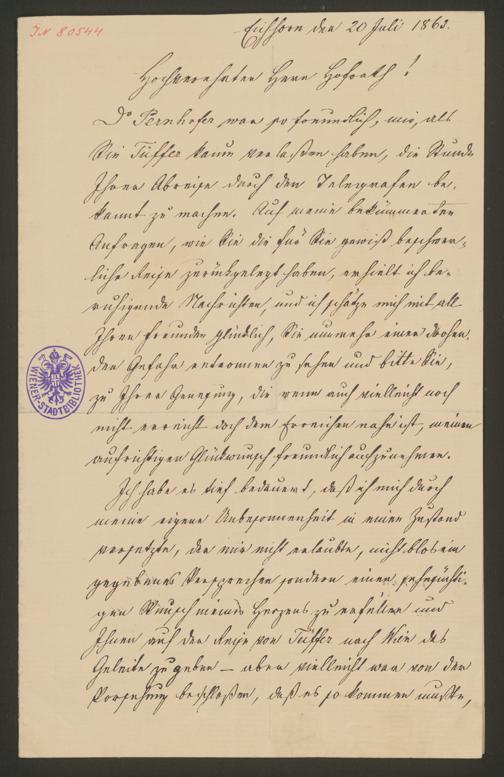 JN 80544
Eichhorn den 20 Juli 1863.
Hochverehrter Herr Hofrath!
Dr Pernhofer war so freundlich, mir, als
Sie Tüffer kaum verlaßen haben, die Stunde
Ihrer Abreise durch den Telegrafen be-
kannt zu machen. Auf meine bekümmerten
Anfragen, wie Sie die für Sie gewiß beschwer-
liche Reise zurückgelegt haben, erhielt ich be-
ruhigende Nachrichten, und ich schätze mich mit all
Ihren Freunden glücklich, Sie nunmehr einer drohen-
den Gefahr entronnen zu sehen und bitte Sie,
zu Ihrer Genesung, die wenn auch vielleicht noch
nicht erreicht doch dem Erreichen nahe ist, meinen
aufrichtigen Glückwunsch freundlich aufzunehmen.
Ich habe es tief bedauert, daß ich mich durch
meine eigene Unbesonnenheit in einen Zustand
versetzte, der mir nicht erlaubte, nicht blos ein
gegebenes Versprechen sondern einen sehnsüchti-
gen Wunsch meines Herzens zu erfüllen und
Ihnen auf der Reise von Tüffer nach Wien das
Geleite zu geben – aber vielleicht war von der
Vorsehung beschloßen, daß es so kommen mußte,
WIENER-STADTBIBLIOTHEK